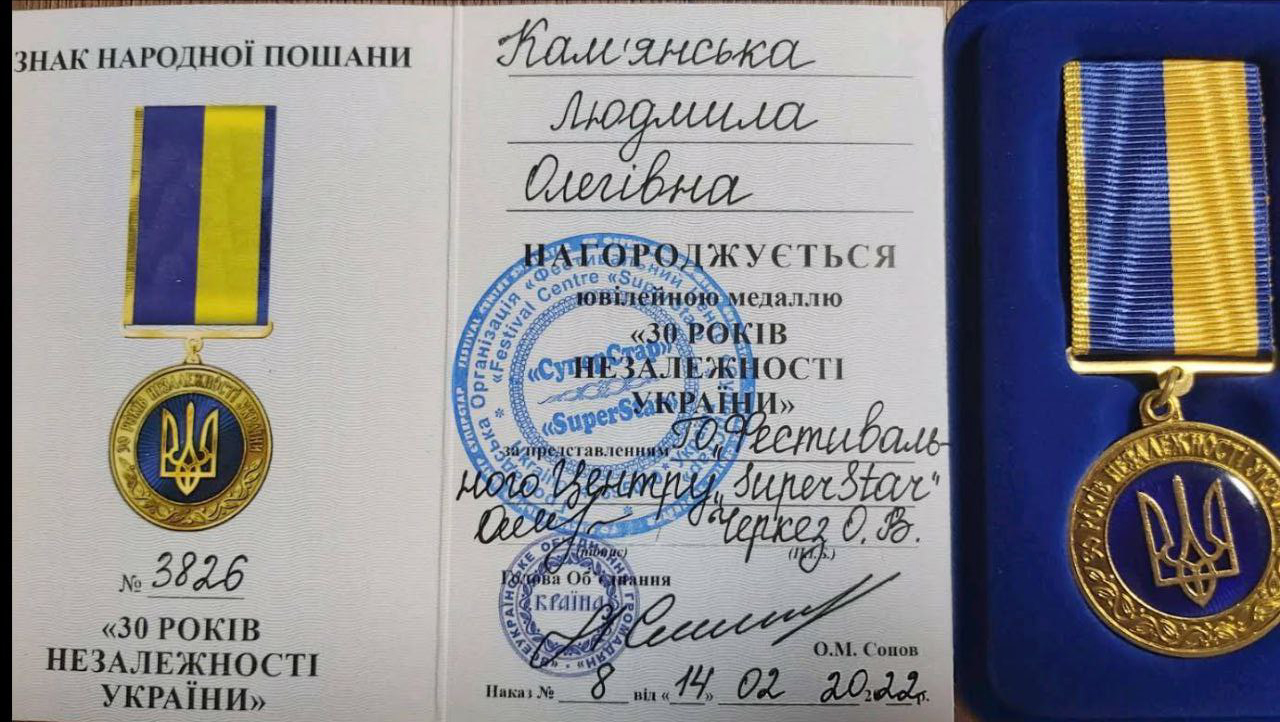 ЗНАК НАРОДНОЇ ПОШАНИ
30 РОКІВ НЕЗАЛЕЖНОСТІ УКРАЇНИ
№ 3826
«30 РОКІВ
НЕЗАЛЕЖНОСТІ
УКРАЇНИ»
Кам'янська
Людмила
Олегівна
НАГОРОДЖУЄТЬСЯ
ювілейною медаллю
«30 РОКІВ
НЕЗАЛЕЖНОСТІ
УКРАЇНИ»
за представленням ГО „Фестиваль-
ного Центру „SuperStar"
Черкез О. В.
(підпис) (П.І.Б.)
Голова Об'єднання
О.М. Сопов
Наказ № 8 від «14» 02 2022р.
Організація «Фестивальний
«Festival Centre «SuperStar»
«СуперСтар»
«SuperStar»
КРАЇНА
30 РОКІВ НЕЗАЛЕЖНОСТІ